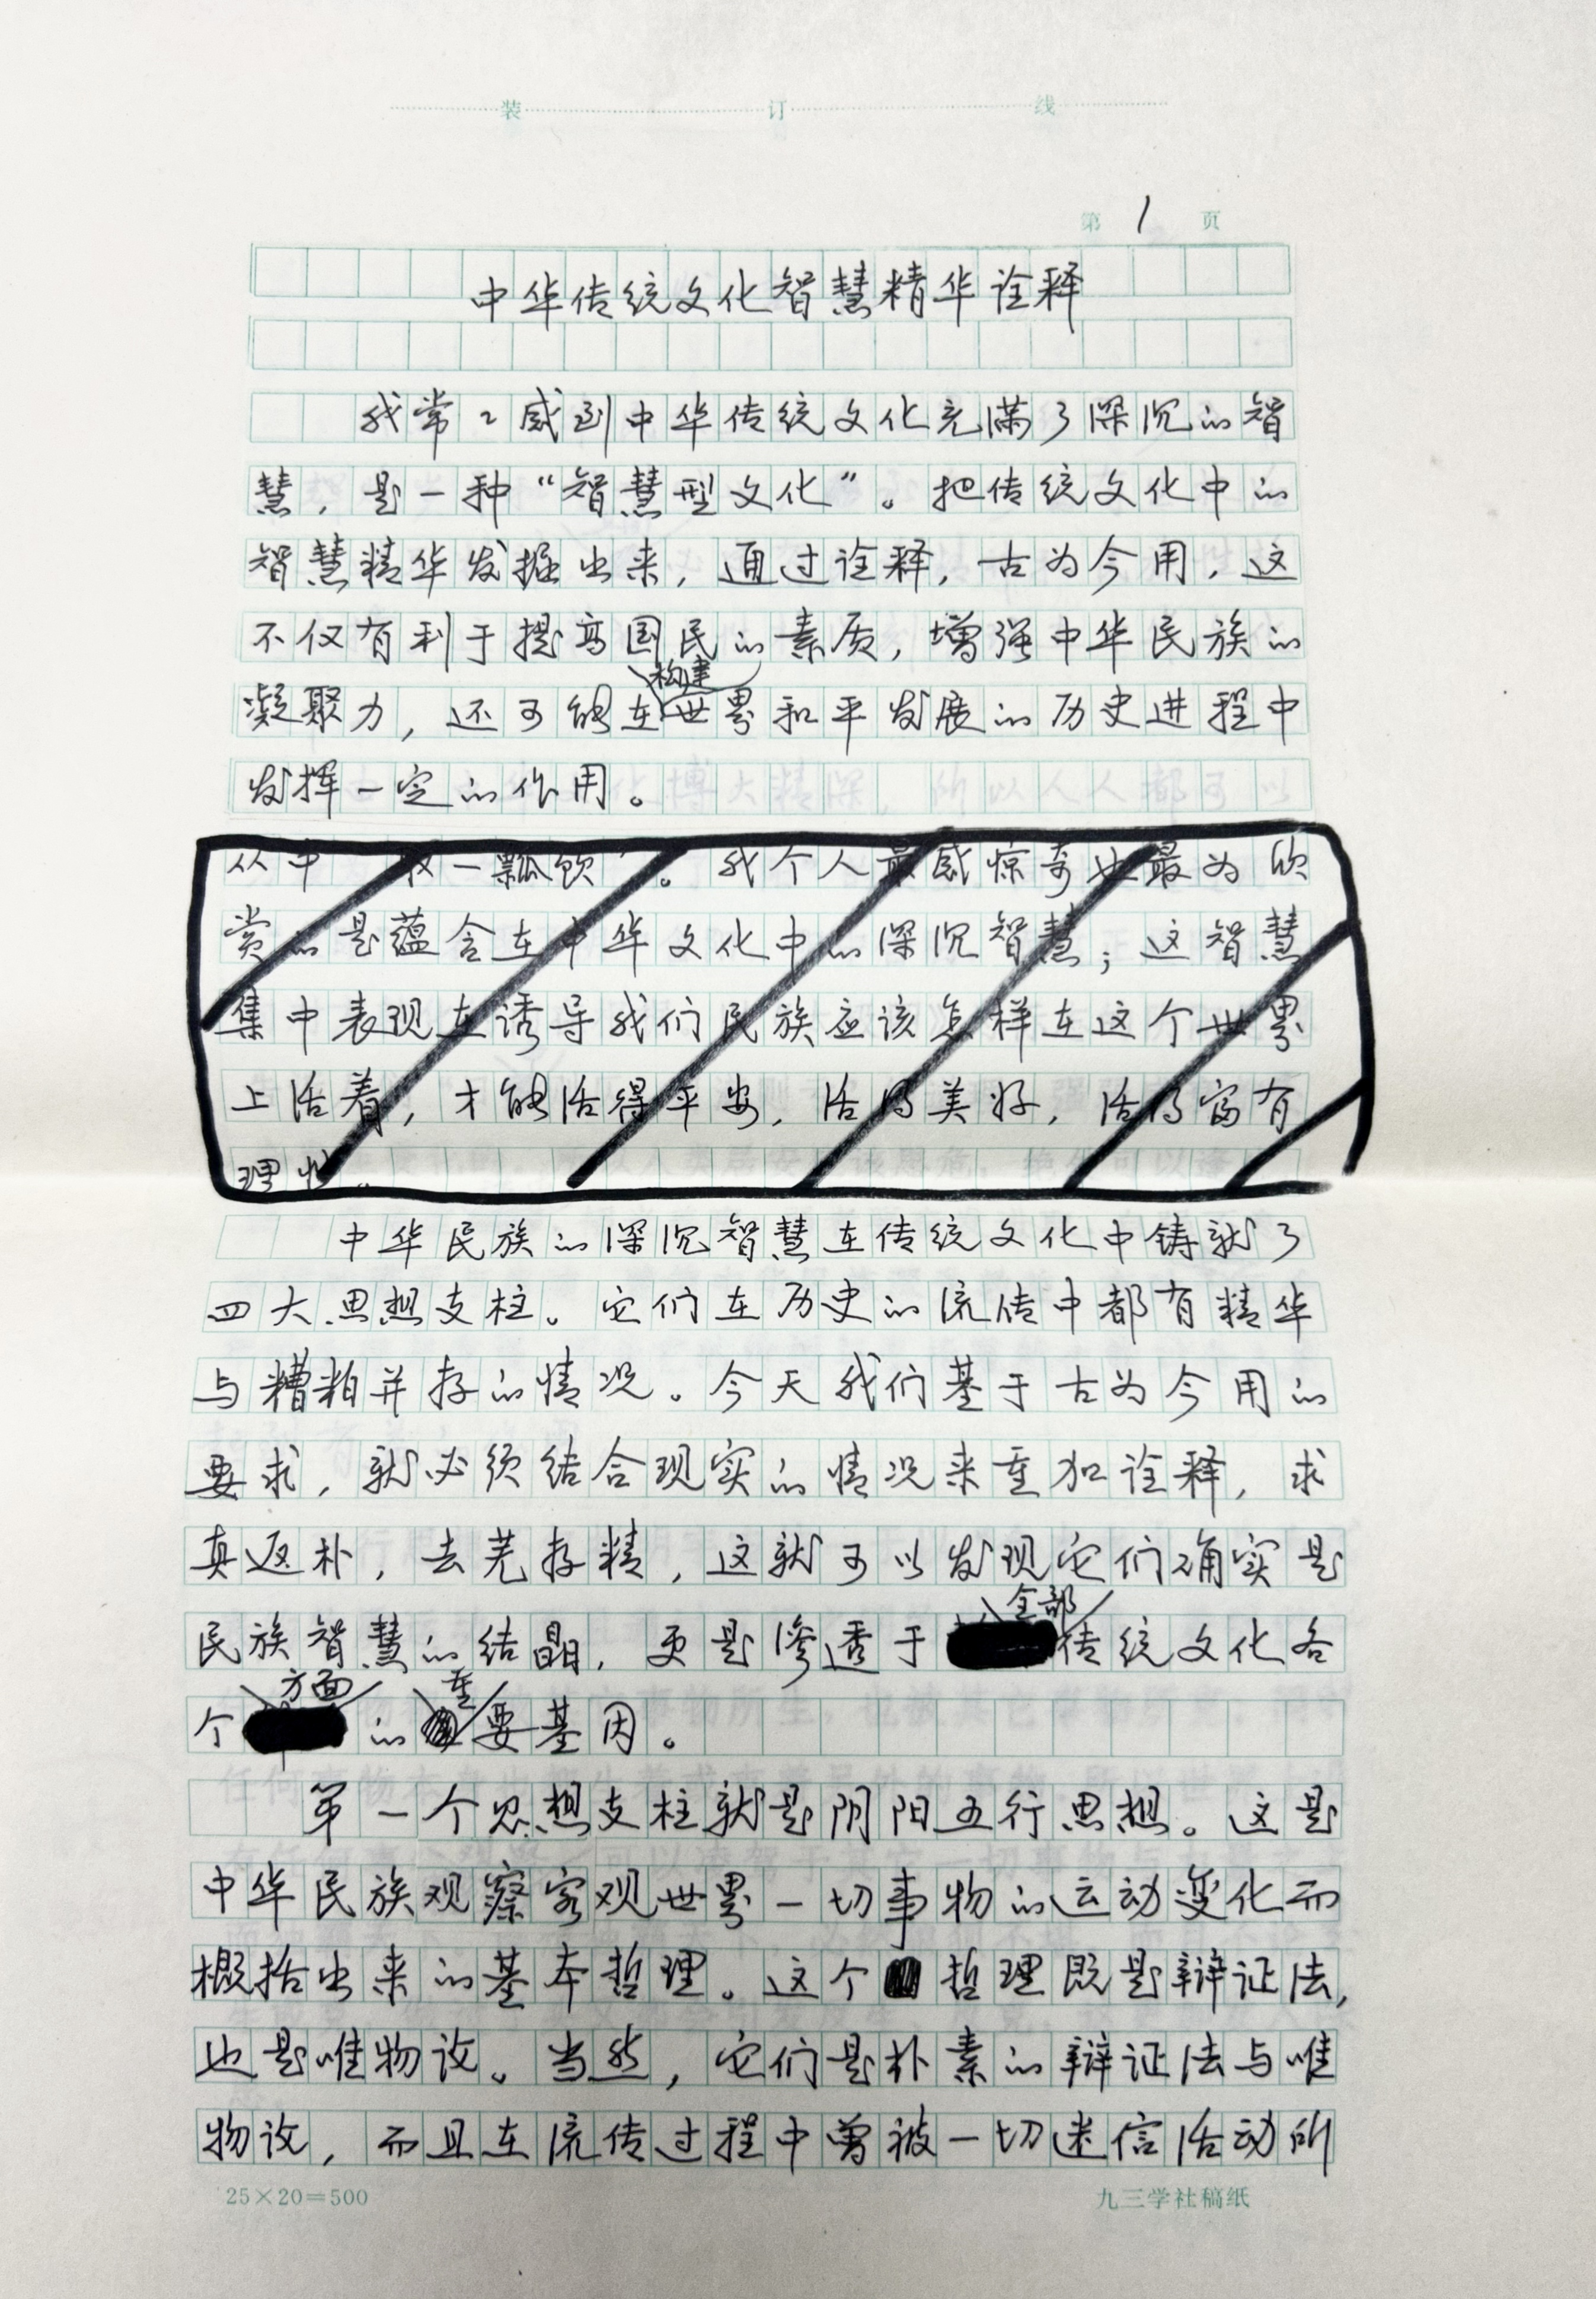 装 订 线
第 1 页
中华传统文化智慧精华诠释
我常々感到中华传统文化充满了深沉的智
慧，是一种“智慧型文化”。把传统文化中的
智慧精华发掘出来，通过诠释，古为今用，这
不仅有利于提高国民的素质，增强中华民族的
构建
凝聚力，还可能在世界和平发展的历史进程中
发挥一定的作用。
从中 取一瓢饮”。我个人最感惊奇也最为欣
赏的是蕴含在中华文化中的深沉智慧；这智慧
集中表现在诱导我们民族应该怎样在这个世界
上活着，才能活得平安，活得美好，活得富有
理性。
中华民族的深沉智慧在传统文化中铸就了
四大思想支柱。它们在历史的流传中都有精华
与糟粕并存的情况。今天我们基于古为今用的
要求，就必须结合现实的情况来重加诠释，求
真返朴，去芜存精，这就可以发现它们确实是
全部
民族智慧的结晶，更是渗透于传统文化各
方面 重
个的要基因。
第一个思想支柱就是阴阳五行思想。这是
中华民族观察客观世界一切事物的运动变化而
概括出来的基本哲理。这个哲理既是辩证法，
也是唯物论。当然，它们是朴素的辩证法与唯
物论，而且在流传过程中曾被一切迷信活动所
25×20＝500
九三学社稿纸